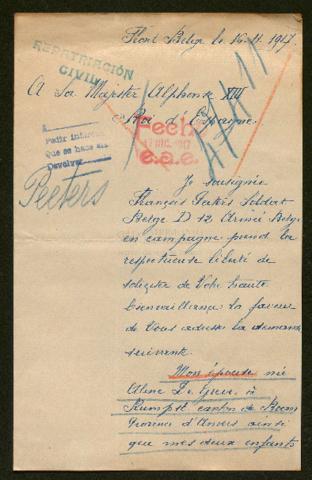 Front Belge le 16.11.1917
REPATRIACIÓN
CIVIL
A Sa Majester Alphonse XIII
Roi d'Espagne.
Fecha
17 DIC. 1917
e.a.e.
A
Pedir informes
Que se haga en
Devolver
Peeters
Je soussignée
François Peeters Soldat
Belge D 12 Armée Belge
en campagne prend la
respectueuse liberté de
soliciter de Votre haute
bienveillance la faveur
de Vous adresser la demande
suivante.
Mon épouse né
Aline De Greve à
Rumpst canton de Boom
Province d'Anvers ainsi
que mes deux enfants